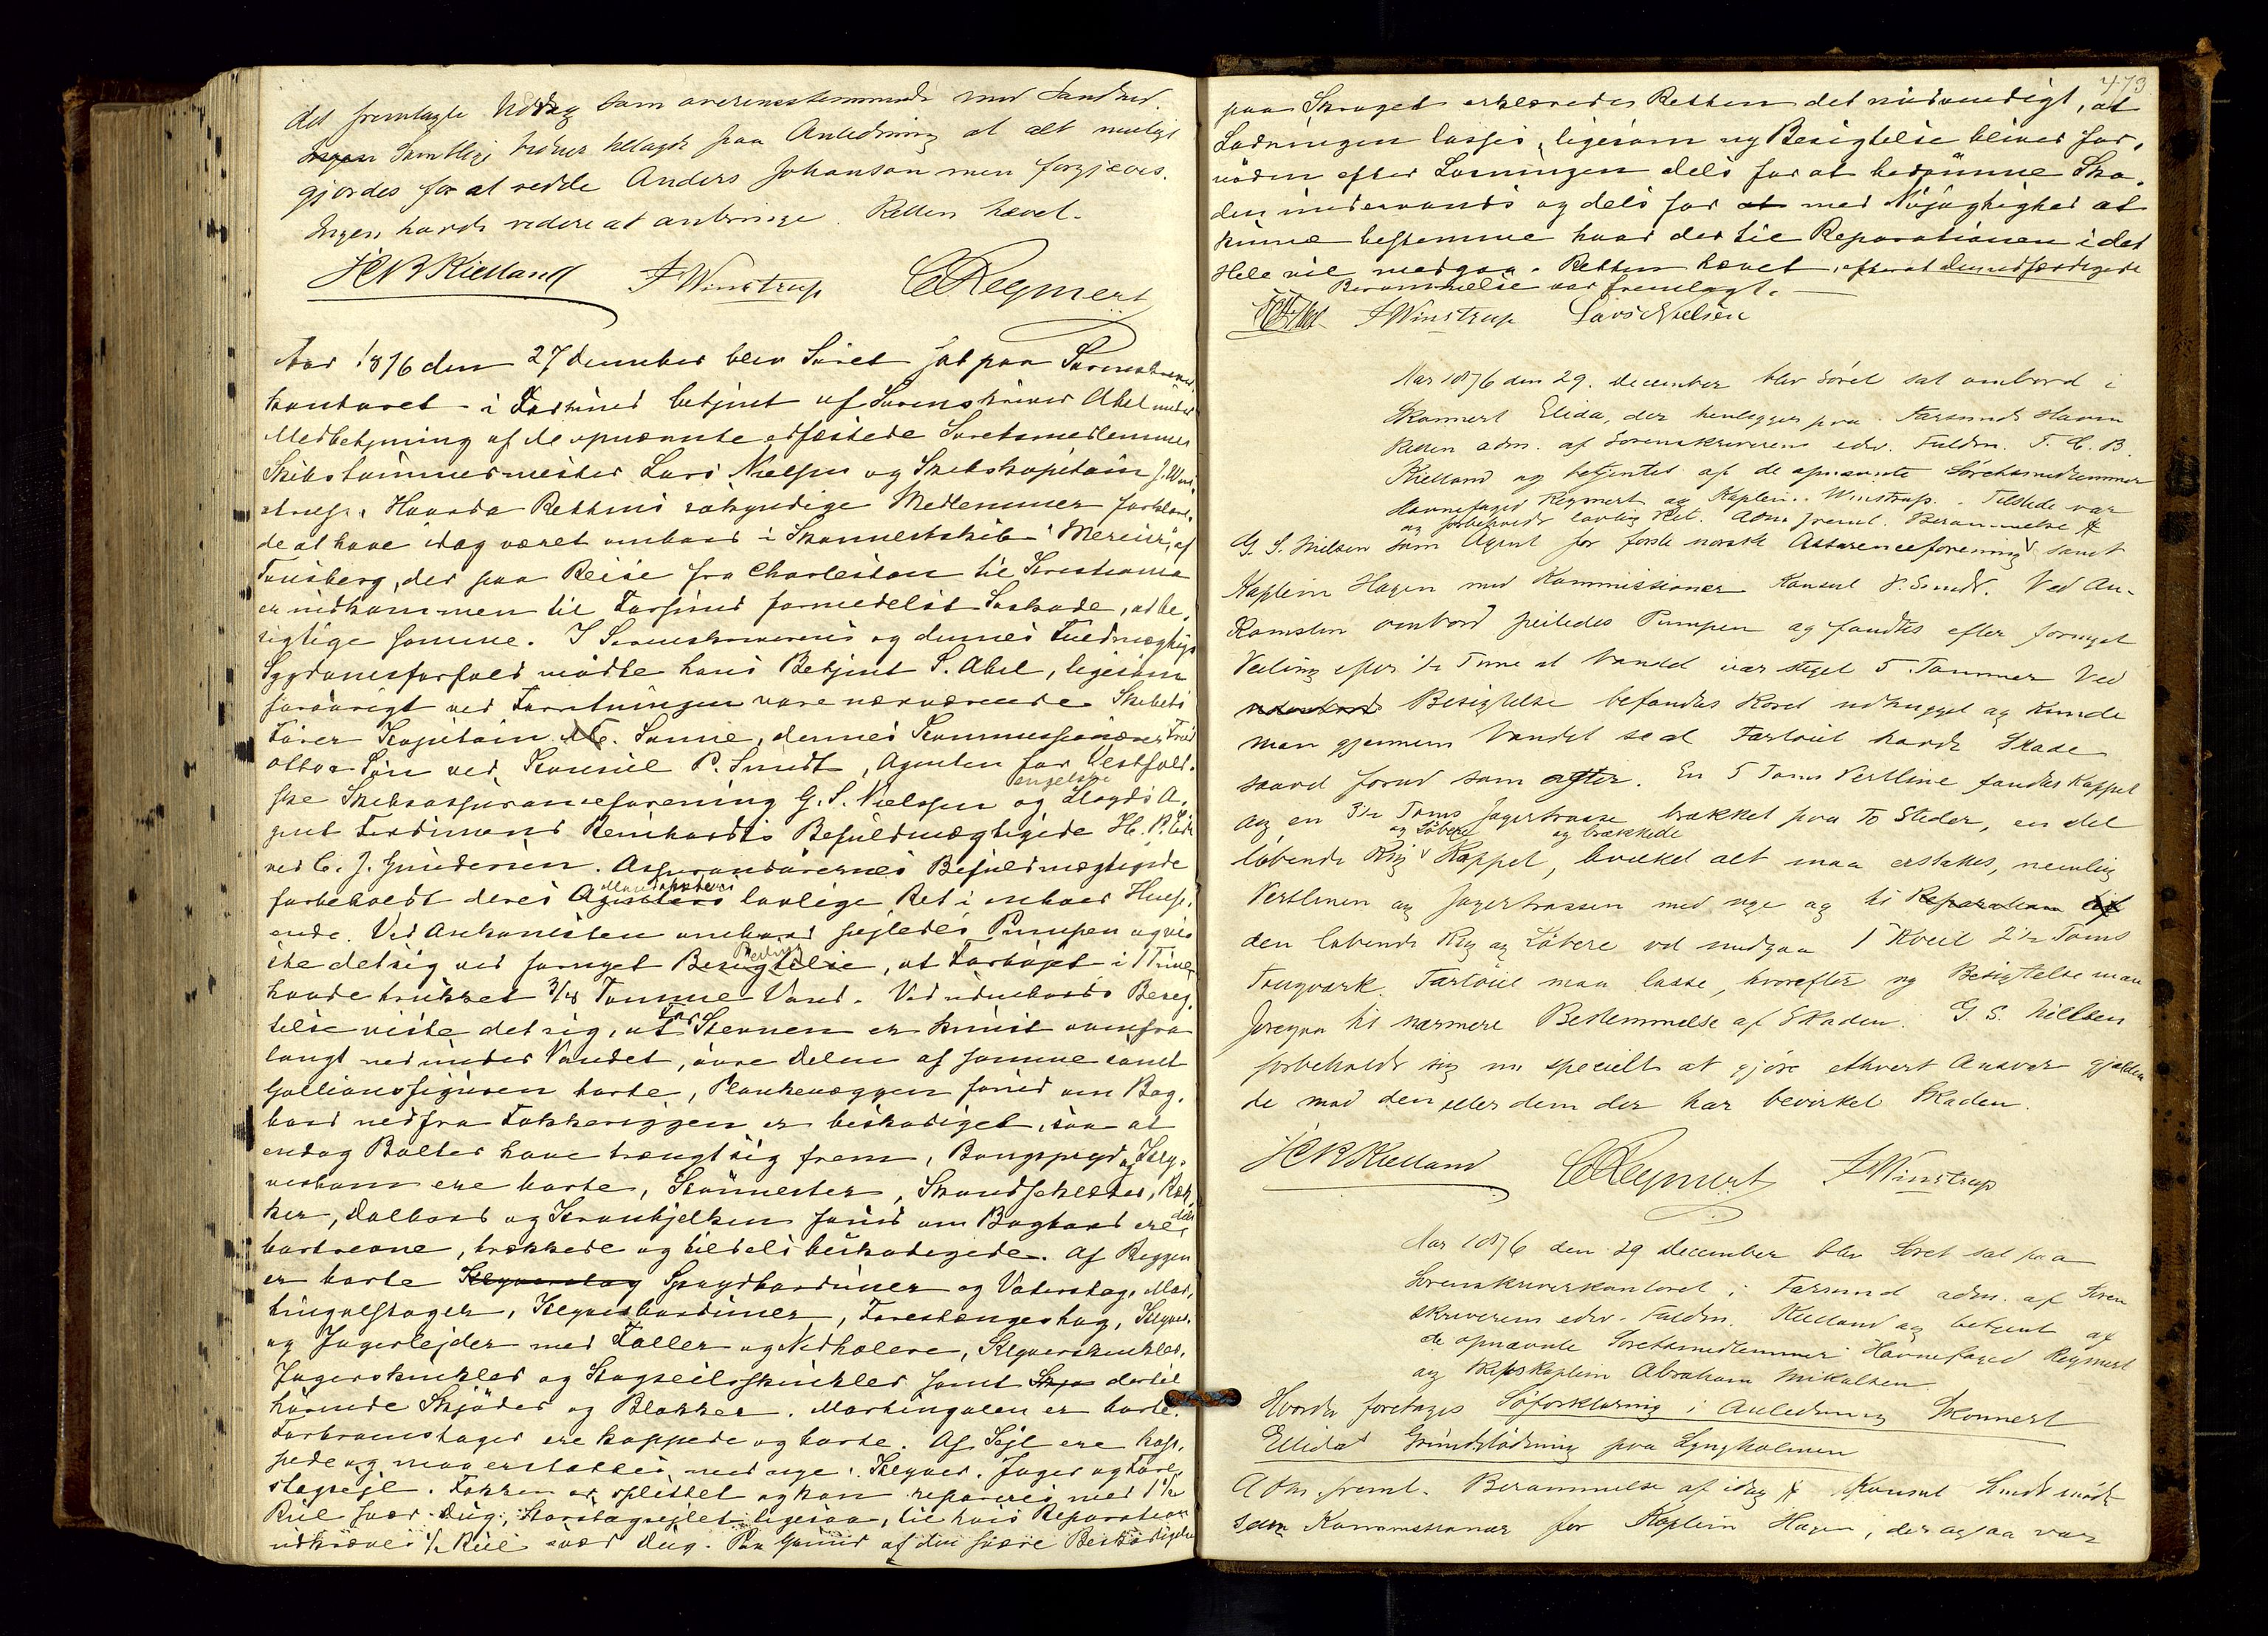 det fremlagte Uddrag som overensstemmende med Sandhed.
Samtlige Vidner udsagde paa Anledning at alt muligt
gjordes for at redde Anders Johanson men forgjæves.
Ingen havde videre at anbringe. Retten hævet.
HCB Kielland J Winstrup C Reymert
Aar 1876 den 27 December blev Söret sat paa Sorenskriver
kontoret i Farsund betjent af Sorenskriver Abel under
Medbetjening af de opnævnte edfæstede Söretsmedlemmer
Skibstömmermester Lars Nielsen og Skibskapitain J. Win
strup. Hvorda Rettens sökyndige Medlemmer forklare
de at have idag været ombord i Skonnertskib "Mercur" af
Tönsberg, der paa Reise fra Charleston til Kristiania
er indkommen til Farsund formedelst Söskade, at be
sigtige samme. I Sorenskriverens og dennes Fuldmægtigs
Sygdomsforfald mödte hans Betjent S. Abel, ligesom
forövrigt ved Forretningen vare nærværende Skibets
Förer Kapitain Sonne, dennes Kommissionærer
Otto & Sön ved Konsul P. Sundt, Agenten for Vestfold
ske Skibsassuranceforening G. S. Nielsen og engelske Lloyds A,
gent Ferdinand Reinhardts Befuldmægtigede
ved C. J. Gundersen. Assurandörernes Befuldmægtigede
forbeholdt deres Mandanters lovlige Ret i enhver Hense,
ende. Ved Ankomsten ombord pejledes Pumpen og vis
ste det sig ved fornyet Peiling, at Fartöjet i 1 Time
havde trukket 3/4 Tomme Vand. Ved udenbords Besig,
telse viste det sig, at For Stevnen er knust ovenfra
langt ned under Vandet, övre Delen af samme samt
Gallionsfiguren borte, Plankevæggen forud om Bag,
bord ned fra Fokkeriggen er beskadiget, saa at
endog Bolter have trængt sig frem, Bougspryd og Klyv,
verbom ere borte, Stönnester, Skandseklæder, Ræk,
ker, Dolbord og Kranbjelken forud om Bagbord ere dels
bortrevne, brækkede og tildels beskadigede. Af Riggen
er borte Klyverstag Sprydbarduner og Vaterstag, Mar,
tingalstager, Klyverbarduner, Forestængestag, Klyver
og Jagerlejder med Faller og Nedhalere, Klyverskinkler,
Jagerskinkler og Stagseilsskinkler samt dertil
hörende Skjöder og Blokker. Martingalen er borte.
Forbramstager ere kappede og borte. Af Sejl ere kap,
pede og maa erstattes med nye: Klyver, Jager og Fore
stagsejl. Fokken er splittet og kan repareres med 1 1/2
Rul svær Dug, Storstagsejlet ligesaa, til hvis Reparation
udkræves 1/2 Rul svær Dug. Paa Grund af den svære Beskadigelse
473
paa Skroget erklærede Retten det nödvendigt, at
Ladningen losses, ligesom ny Besigtelse bliver for,
nöden efter Losningen dels for at bedömme Ska,
den undervands og dels for at med Nöjagtighed at
kunne bestemme hvad der til Reparationen i det
Hele vil medgaa. Retten hævet, efterat den udfærdigede
Berammelse var fremlagt.
J Winstrup Lars Nielsen
Aar 1876 den 29. December blev Söret sat ombord i
Skonnert Elida, der henligger paa Farsunds Havn
Retten adm. af Sorenskriverens edsv. Fuldm. F. C. B.
Kielland og betjentes af de opnævnte Söretsmedlemmer
Havnefoged Reymert og Kaptein Winstrup. Tilstede var
og forbeholdt lovlig Ret. Adm. freml. Berammelse
G. S. Nielsen som Agent for förste norske Assuranceforening samt
Kaptein Hagen med Kommissionær Konsul P. Sundt. Ved An-
komsten ombord peiledes Pumpen og fandtes efter fornyet
Peiling efter 1/2 Time at Vandet var steget 5 Tommer Ved
Besigtelse befandtes Roret udhugget og kunde
man gjennem Vandet se at Fartöiet havde Skade
saavel forud som agter. En 5 Toms Vertline fandtes kappet
og en 3 1/2 Toms Jagertrosse brækket paa To Steder, en del
löbende Rig og Löbere kappet og brækkede, hvilket alt maa erstattes, nemlig
Vertlinen og Jagertrossen med nye og til Reparation af
den löbende Rig og Löbere vil medgaa 1 Kveil 2 1/2 Toms
Tougværk. Fartöiet maa losse, hvorefter ny Besigtelse maa
foregaa til nærmere Bestemmelse af Skaden. G. S. Nielsen
forbeholdt sig nu specielt at gjöre ethvert Ansvar gjælden
de mod den eller dem der har bevirket Skaden.
HCB Kielland C Reymert J Winstrup
Aar 1876 den 29 December blev Söret sat paa
Sorenskriverkontoret i Farsund adm. af Soren
skriverens edsv. Fuldm. Kielland og betjent af
de opnævnte Söretsmedlemmer Havnefoged Reymert
og Skibskaptein Abraham Mikalsen.
Hvorda foretages Söforklaring i Anledning Skonnert
Elidas Grundstödning paa Lyngholmen
Adm. freml. Berammelse af idag Konsul Sundt mödte
som Kommissionær for Kaptein Hagen, der ogsaa var